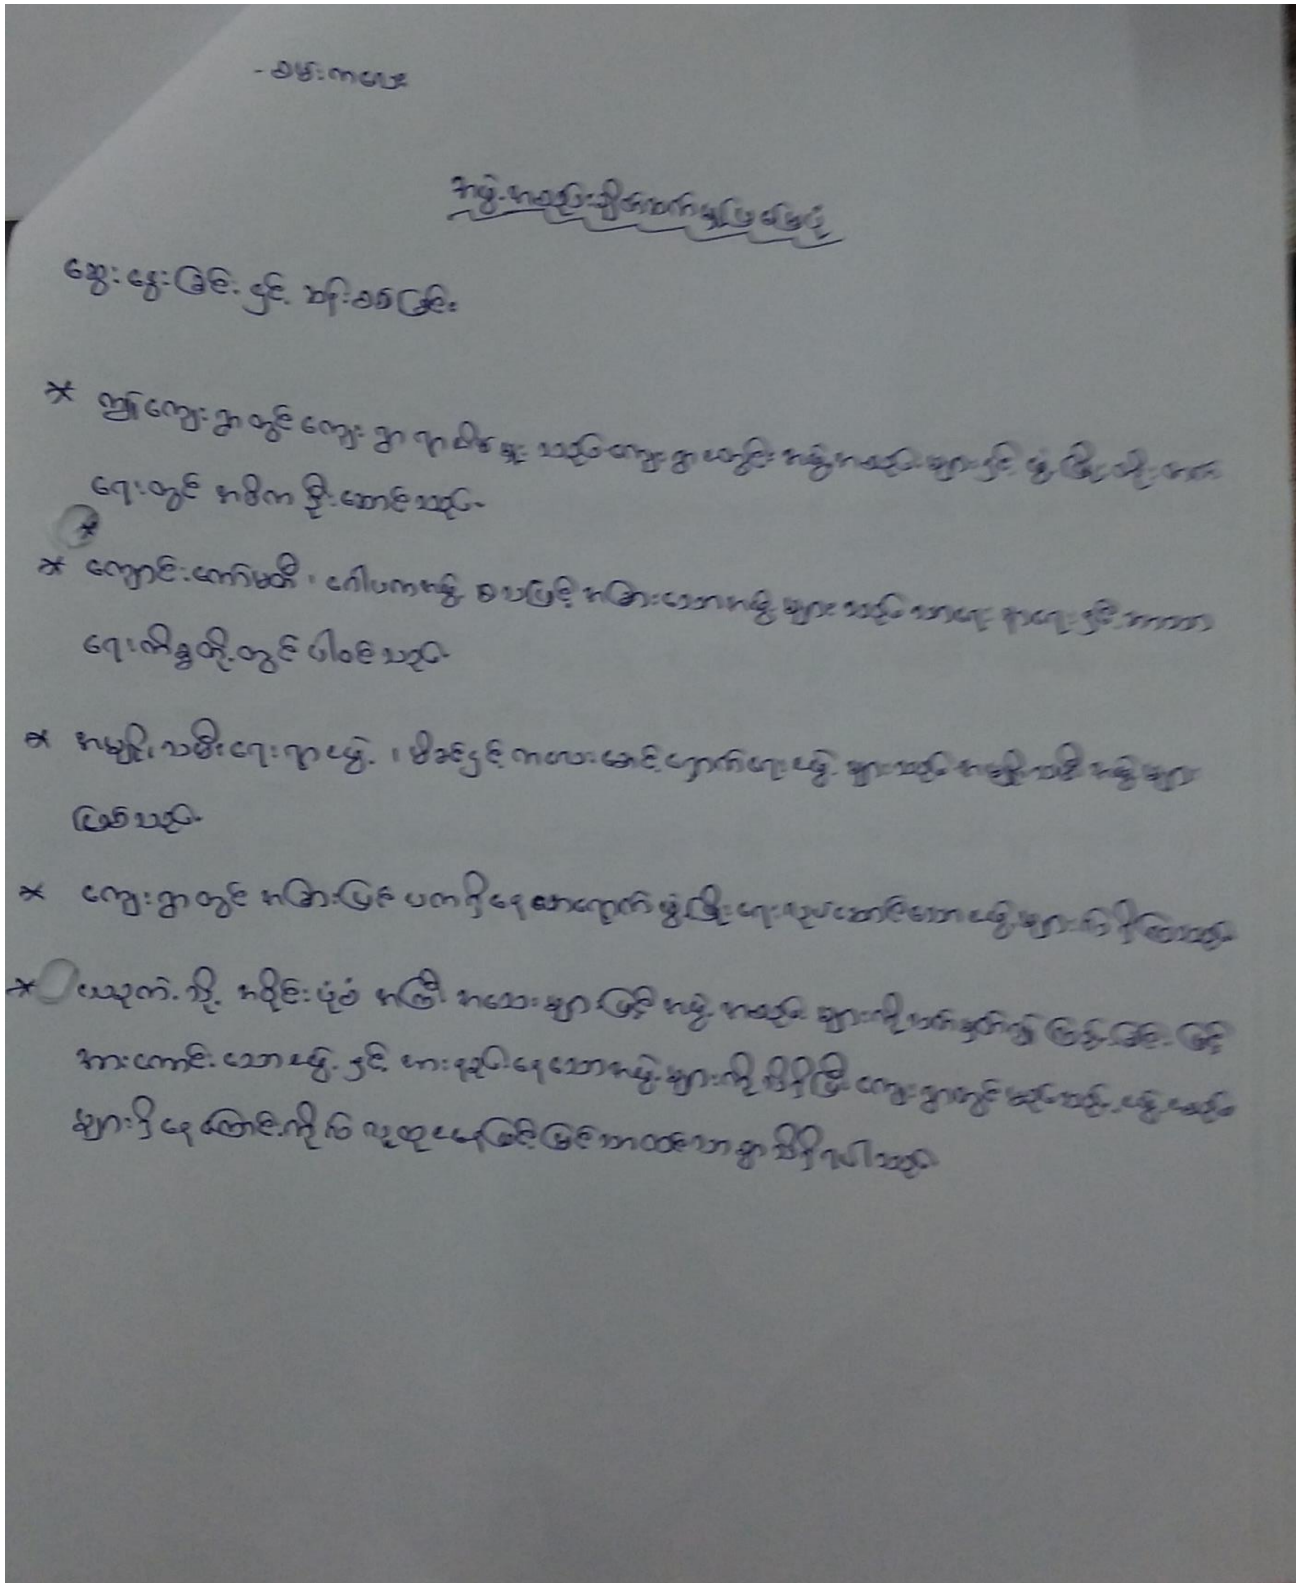 - စမ်းကလေး
အဖွဲ့အစည်းချိတ်ဆက်မှုပြမြေပုံ
ဆွေးနွေးခြင်းနှင့် ဆန်းစစ်ခြင်း
* ဤကျေးရွာတွင်ကျေးရွာရာအိမ်မှူးသည်ကျေးရွာတွင်းအဖွဲ့အစည်းများနှင့် ဖွံ့ဖြိုးတိုးတက်
ရေးတွင် အဓိက ဦးဆောင်သည်။
* ကျောင်းကော်မတီ၊ ဂေါပကအဖွဲ့ စသဖြင့် အခြားသောအဖွဲ့များသည် သာရေး နာရေးနှင့် ဘာသာ
ရေးကိစ္စတို့တွင် ပါဝင်သည်။
* အမျိုးသမီးရေးရာအဖွဲ့၊ မိခင်နှင့်ကလေးစောင့်ရှောက်ရေးအဖွဲ့များသည် အမျိုးသမီးအဖွဲ့များ
ဖြစ်သည်။
* ကျေးရွာတွင် အခြားပြင်ပက ရှိနေ ဖွံ့ဖြိုးရေးလုပ်ဆောင်သောအဖွဲ့များလည်းရှိကြသည်။
* ယခုကဲ့သို့ အဝိုင်းပုံစံ အကြီး အသေးများဖြင့် အဖွဲ့အစည်းများကို သတ်မှတ်၍ ပြခြင်းဖြင့်
အားကောင်းသောအဖွဲ့နှင့် အားနည်းနေသောအဖွဲ့များကို သိရှိပြီး ကျေးရွာတွင် မည်သည့်အဖွဲ့အစည်း
များရှိနေကြောင်းကိုလည်းလူထုအနေဖြင့်မြင်သာထင်သာစွာသိရှိရပါသည်။